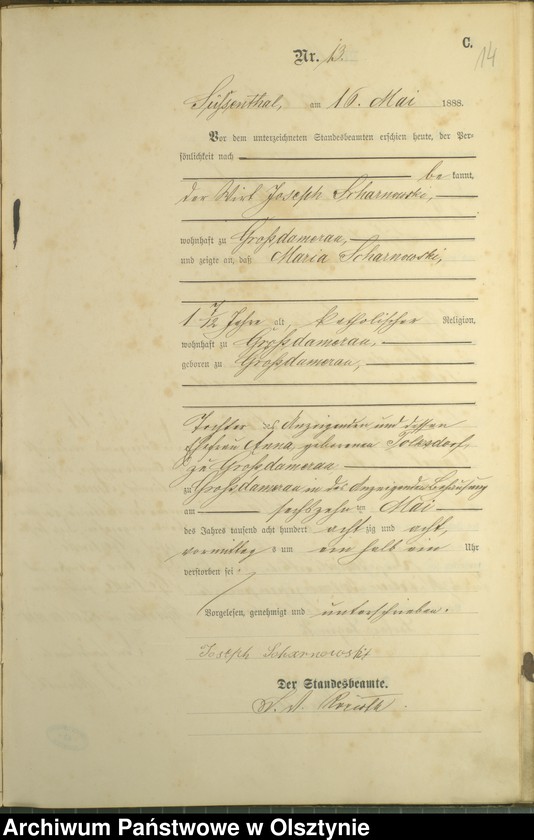 C.
14
Nr. 13.
Süssenthal, am 16. Mai 1888.
Vor dem unterzeichneten Standesbeamten erschien heute, der Per-
sönlichkeit nach
be kannt,
der Wirt Joseph Scharnowski,
wohnhaft zu Großdamerau,
und zeigte an, daß Maria Scharnowski,
1 7/12 Jahre alt, katholischer Religion,
wohnhaft zu Großdamerau,
geboren zu Großdamerau,
Tochter des Anzeigenden und dessen
Ehefrau Anna, geborenen Tolksdorf
zu Großdamerau
zu Großdamerau in des Anzeigenden Behausung
am sechszehn ten Mai
des Jahres tausend acht hundert acht zig und acht,
vormittags um ein halb ein Uhr
verstorben sei.
Vorgelesen, genehmigt und unterschrieben.
Joseph Scharnowski
Der Standesbeamte.
Archiwum Państwowe w Olsztynie